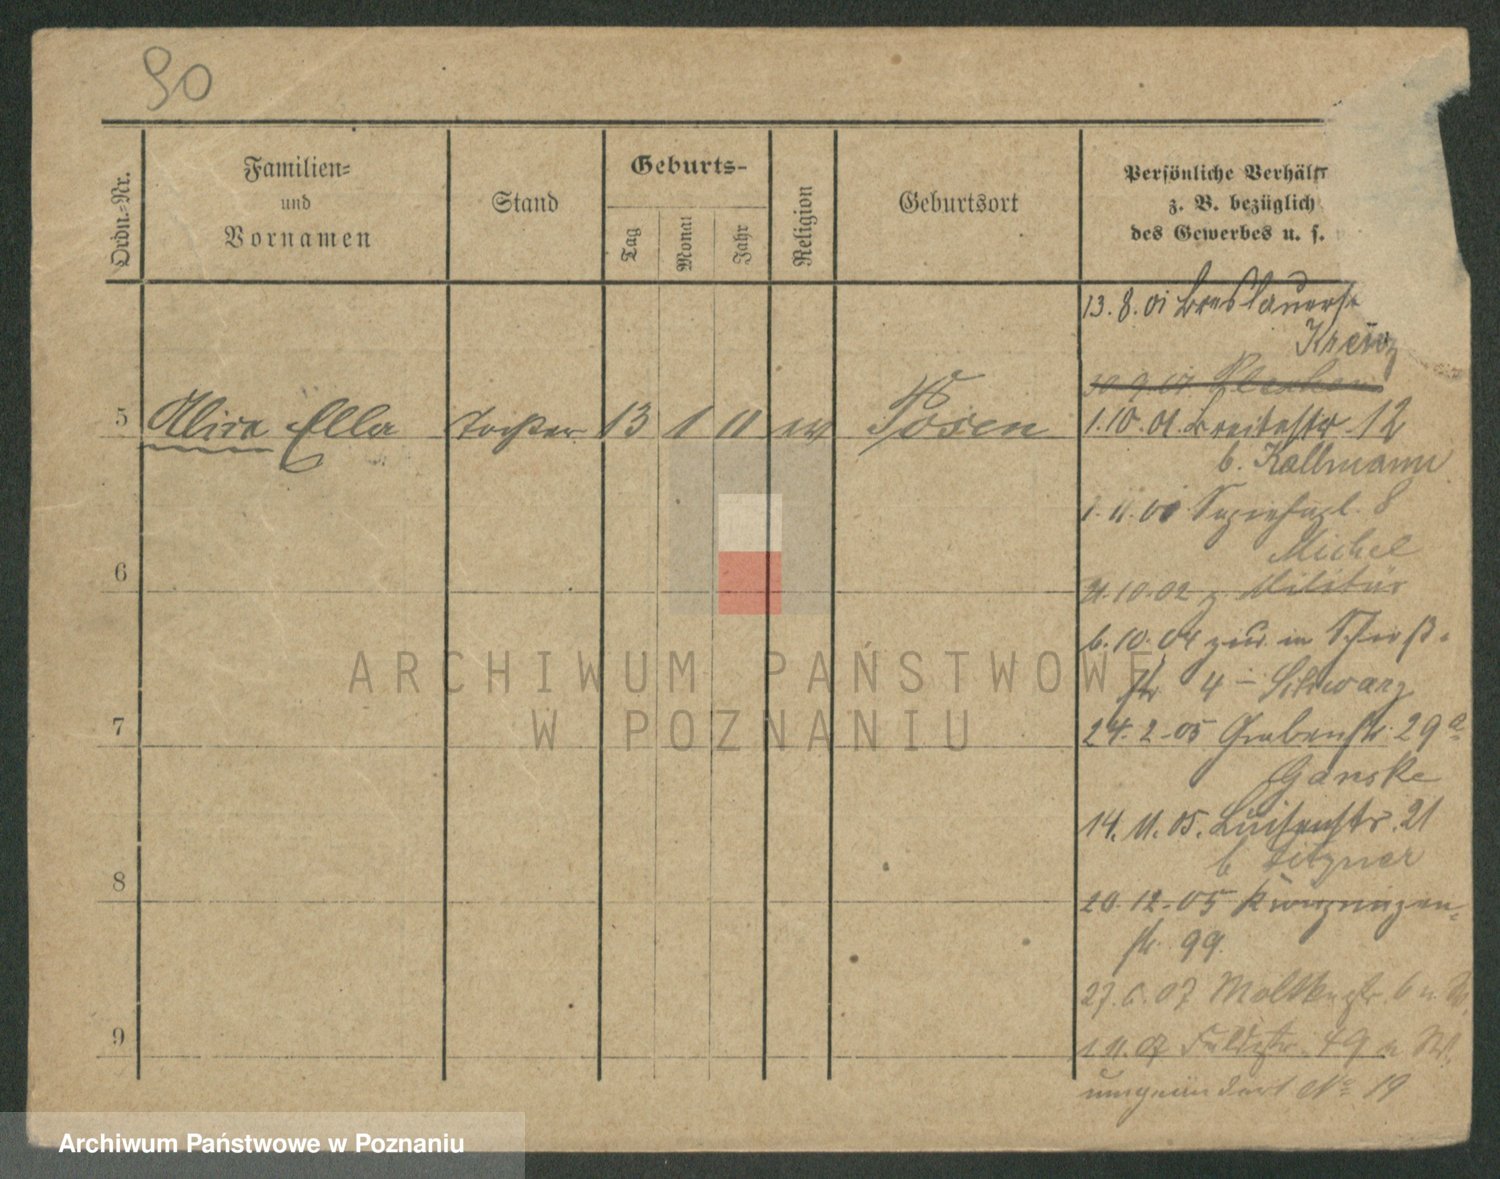 90
Ordn.-Nr.
Familien-
und
Vornamen
Stand
Geburts-
Tag
Monat
Jahr
Religion
Geburtsort
Persönliche Verhält
z. B. bezüglich
des Gewerbes u. s.
13.8.01 Breslauerstr
5 Ella Tochter 13 1 11 ev Posen
1.10.01. Breitestr 12
b. Kallmann
8
Michel
6
31.10.02 z. Militär
6.10.04 zur. in Schieß-
str 4 - Schwarz
7
24.2.05 Grabenstr. 29a
Ganske
14.11.05. Luisenstr. 21
8
20.12.05
str. 99.
27.6.07 Moltkestr. 6
9
1.11.07 49
umgeändert No 19
ARCHIWUM PAŃSTWOWE
W POZNANIU
Archiwum Państwowe w Poznaniu